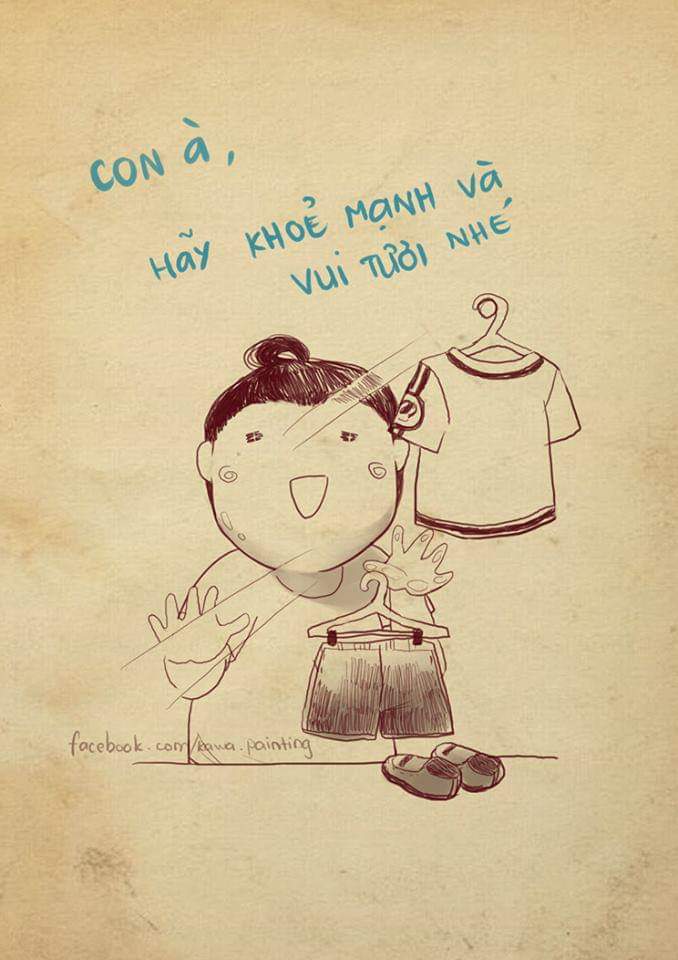 CON À,
HÃY KHOẺ MẠNH VÀ
VUI TƯƠI NHÉ
facebook.com/kawa.painting